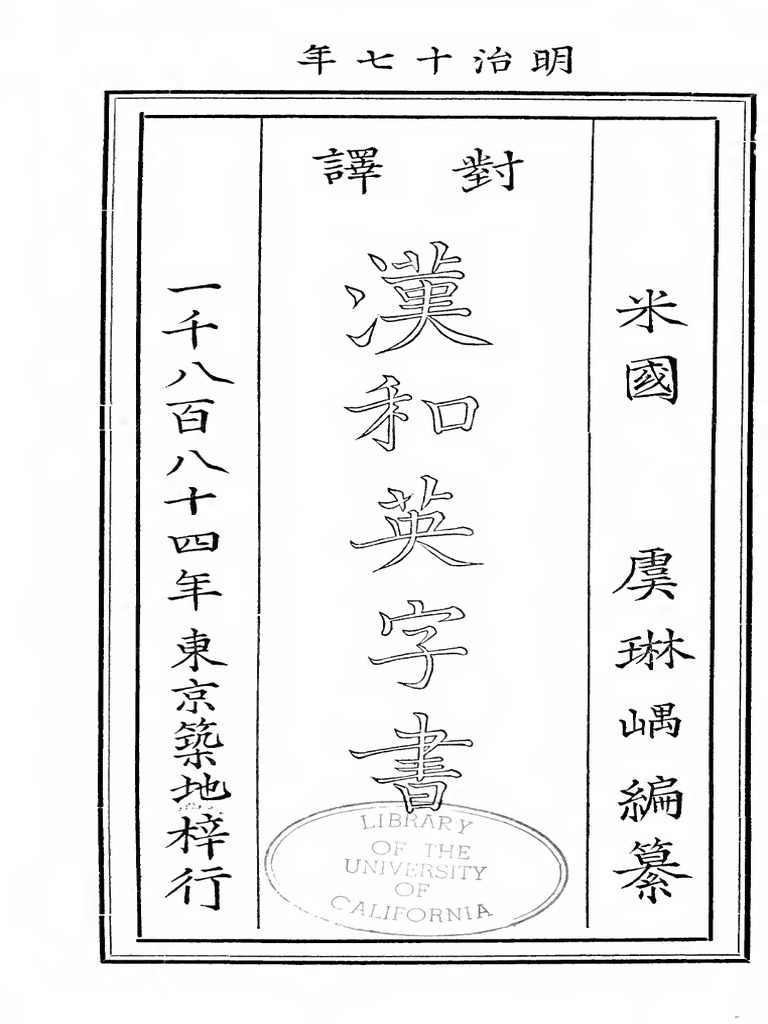 明治十七年
米國 虞琳嵎編纂
對譯
漢和英字書
一千八百八十四年東京築地梓行
LIBRARY
OF THE
UNIVERSITY
OF
CALIFORNIA